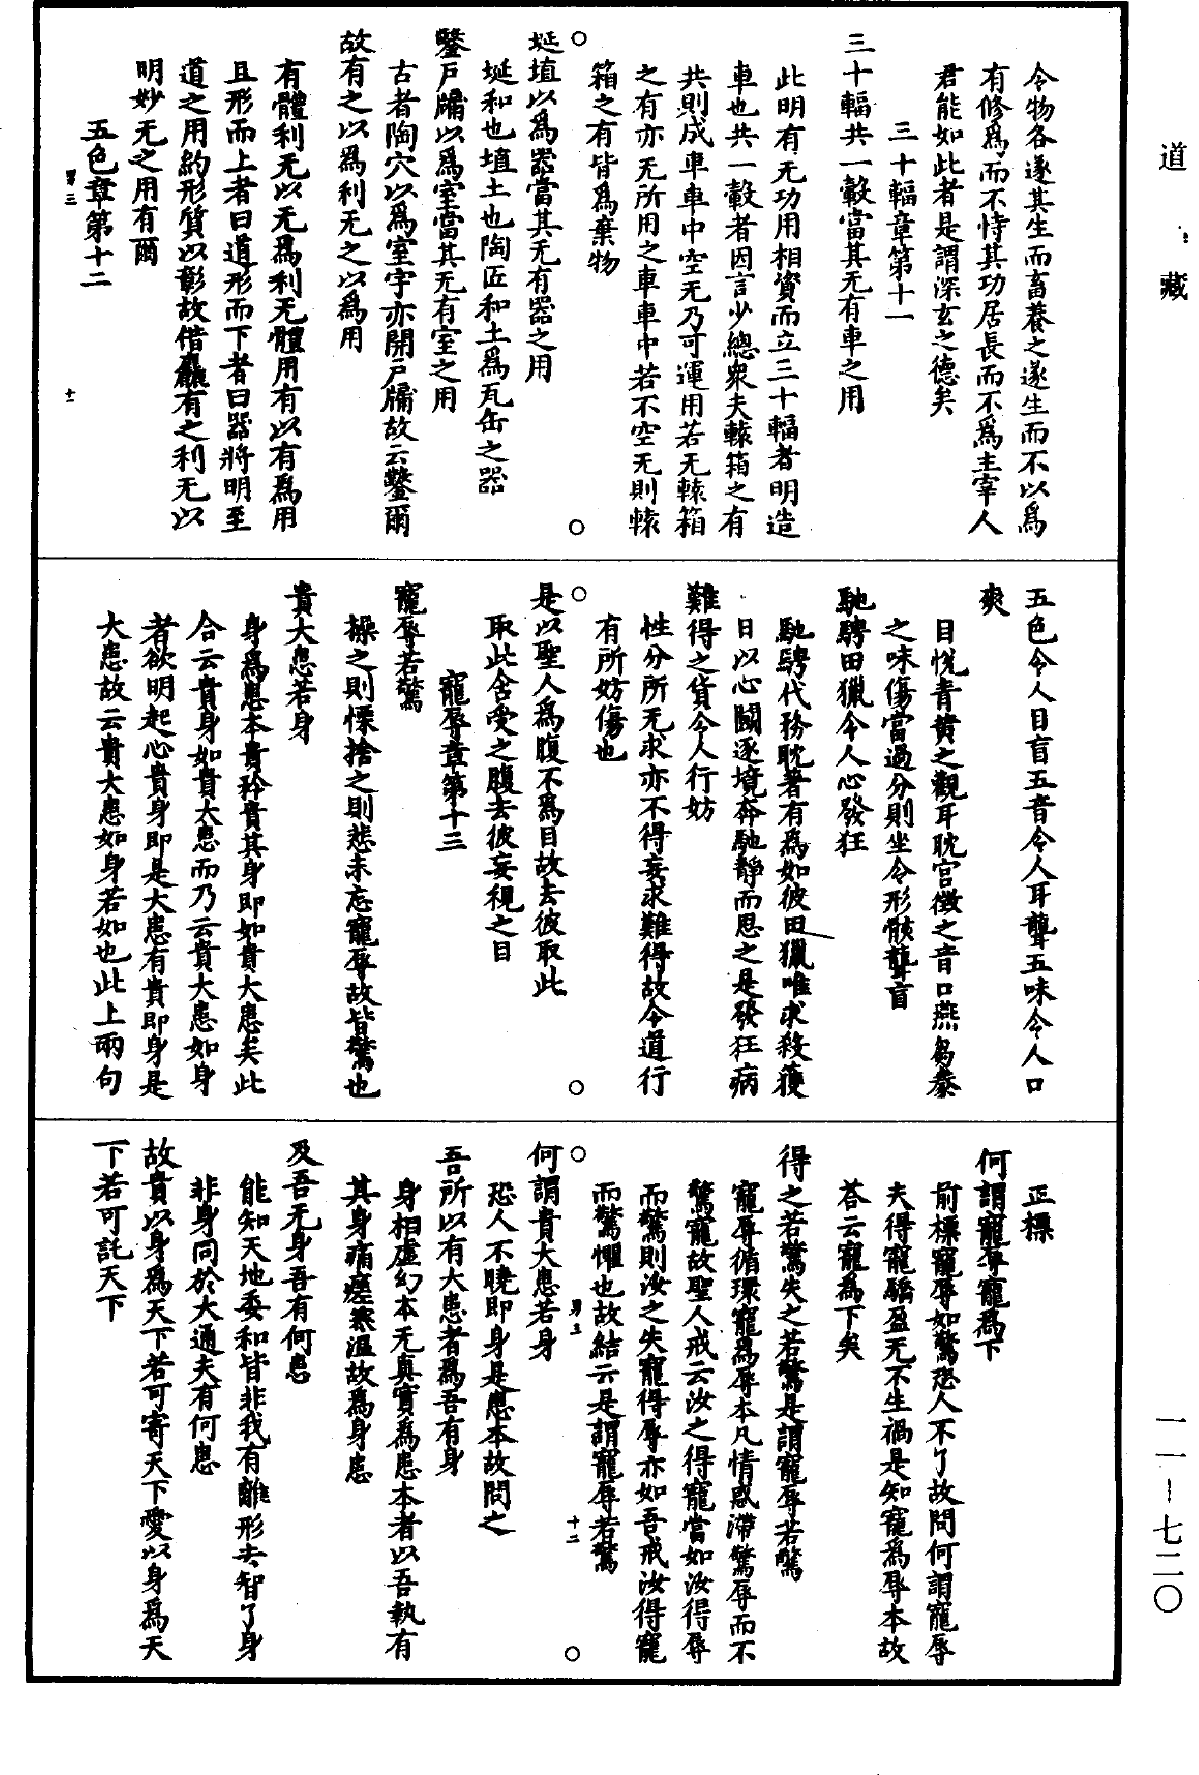 道藏
一一－七二〇
令物各遂其生而畜養之遂生而不以爲
有修爲而不恃其功居長而不爲主宰人
君能如此者是謂深玄之德矣
三十輻章第十一
三十輻共一轂當其无有車之用
此明有无功用相資而立三十輻者明造
車也共一轂者因言少總衆夫轅箱之有
共則成車車中空无乃可運用若无轅箱
之有亦无所用之車車中若不空无則轅
箱之有皆爲棄物
埏埴以爲器當其无有器之用
埏和也埴土也陶匠和土爲瓦缶之器
鑿戶牖以爲室當其无有室之用
古者陶穴以爲室宇亦開戶牖故云鑿爾
故有之以爲利无之以爲用
有體利无以无爲利无體用有以有爲用
且形而上者曰道形而下者曰器將明至
道之用約形質以彰故借麤有之利无以
明妙无之用有爾
男三
十一
五色章第十二
五色令人目盲五音令人耳聾五味令人口
爽
目悅青黃之觀耳耽宮徵之音口燕芻豢
之味傷當過分則坐令形骸聾盲
馳騁田獵令人心發狂
馳騁代務耽著有爲如彼田獵唯求殺獲
日以心鬭逐境奔馳靜而思之是發狂病
難得之貨令人行妨
性分所无求亦不得妄求難得故令道行
有所妨傷也
是以聖人爲腹不爲目故去彼取此
取此含受之腹去彼妄視之目
寵辱章第十三
寵辱若驚
操之則慄捨之則悲未忘寵辱故皆驚也
貴大患若身
身爲患本貴矜貴其身即如貴大患矣此
合云貴身如貴大患而乃云貴大患如身
者欲明起心貴身即是大患有貴即身是
大患故云貴大患如身若如也此上兩句
正標
何謂寵辱寵爲下
前標寵辱如驚恐人不了故問何謂寵辱
夫得寵驕盈无不生禍是知寵爲辱本故
荅云寵爲下矣
得之若驚失之若驚是謂寵辱若驚
寵辱循環寵爲辱本凡情惑滯驚辱而不
驚寵故聖人戒云汝之得寵當如汝得辱
而驚則汝之失寵得辱亦如吾戒汝得寵
而驚懼也故結云是謂寵辱若驚
男三
十二
何謂貴大患若身
恐人不曉即身是患本故問之
吾所以有大患者爲吾有身
身相虛幻本无真實爲患本者以吾執有
其身痛癢寒溫故爲身患
及吾无身吾有何患
能知天地委和皆非我有離形去智了身
非身同於大通夫有何患
故貴以身爲天下若可寄天下愛以身爲天
下若可託天下